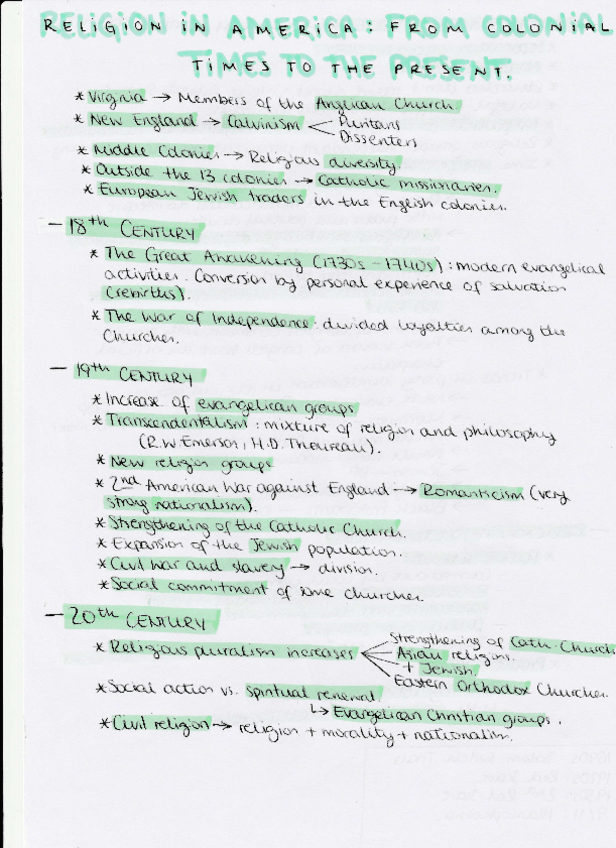 RELIGION IN AMERICA: FROM COLONIAL
TIMES TO THE PRESENT.
* Virginia → Members of the Anglican Church
* New England → Calvinism < Puritans
Dissenters
* Middle Colonies → Religious diversity.
* Outside the 13 colonies → Catholic missionaries.
* European Jewish traders in the English colonies.
- 18th CENTURY
* The Great Awakening (1730s - 1740s): modern evangelical
activities. Conversion by personal experience of salvation
(rebirths).
* The War of Independence: divided loyalties among the
Churches.
- 19th CENTURY
* Increase of evangelican groups
* Transcendentalism: mixture of religion and philosophy
(R.W Emerson, H.D. Thoureau).
* New religion groups
* 2nd American War against England → Romanticism (very
strong nationalism).
* Strengthening of the Catholic Church.
* Expansion of the Jewish population.
* Civil War and slavery → division.
* Social commitment of some churches.
- 20th CENTURY
* Religious pluralism increases
Strengthening of Cath. Church.
Asian religions.
+ Jewish.
Eastern Orthodox Churches.
* Social action vs. spiritual renewal
↳ Evangelican Christian groups.
* Civil religion → religion + morality + nationalism.